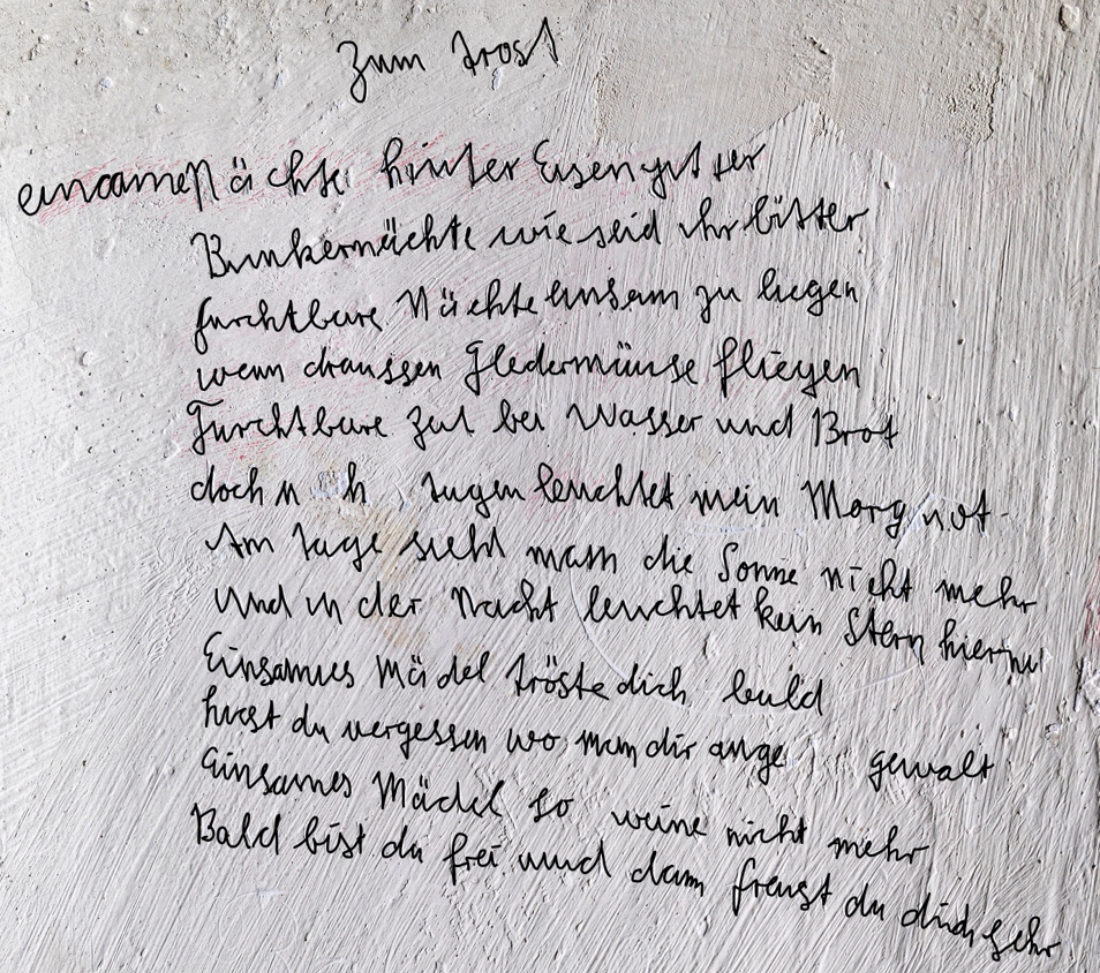 Zum Trost
einsame Nächte hinter Eisengitter
Bunkernächte wie seid ihr bitter
furchtbare Nächte einsam zu liegen
wenn draussen Fledermäuse fliegen
Furchtbare Zeit bei Wasser und Brot
doch tagen leuchtet mein
Am Tage sieht man die Sonne nicht mehr
und in der Nacht leuchtet kein Stern
Einsames Mädel tröste dich bald
hast du vergessen wo man dir gewalt
Einsames Mädel so weine nicht mehr
Bald bist du frei und dann freust du dich sehr